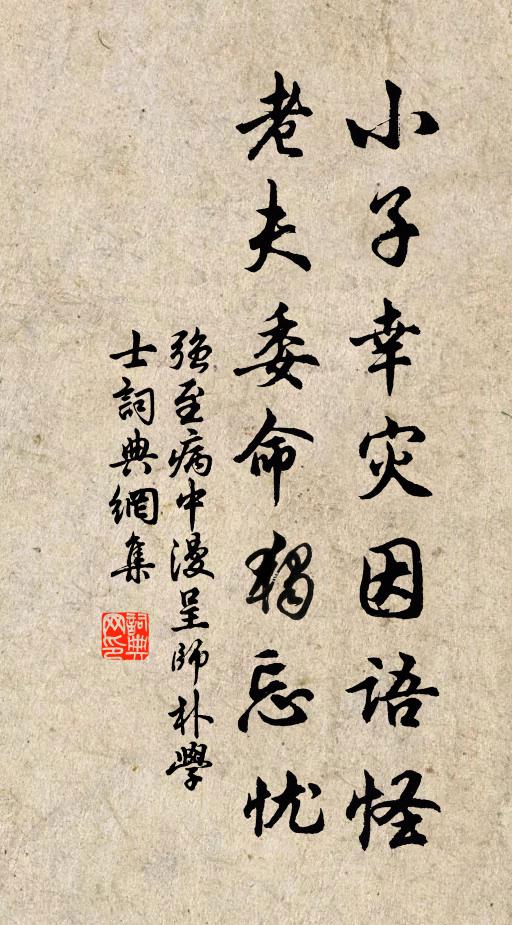 小子幸灾因语怪
老夫委命独忘忧
强至病中漫呈师朴学
士詞典網集
詞典网印